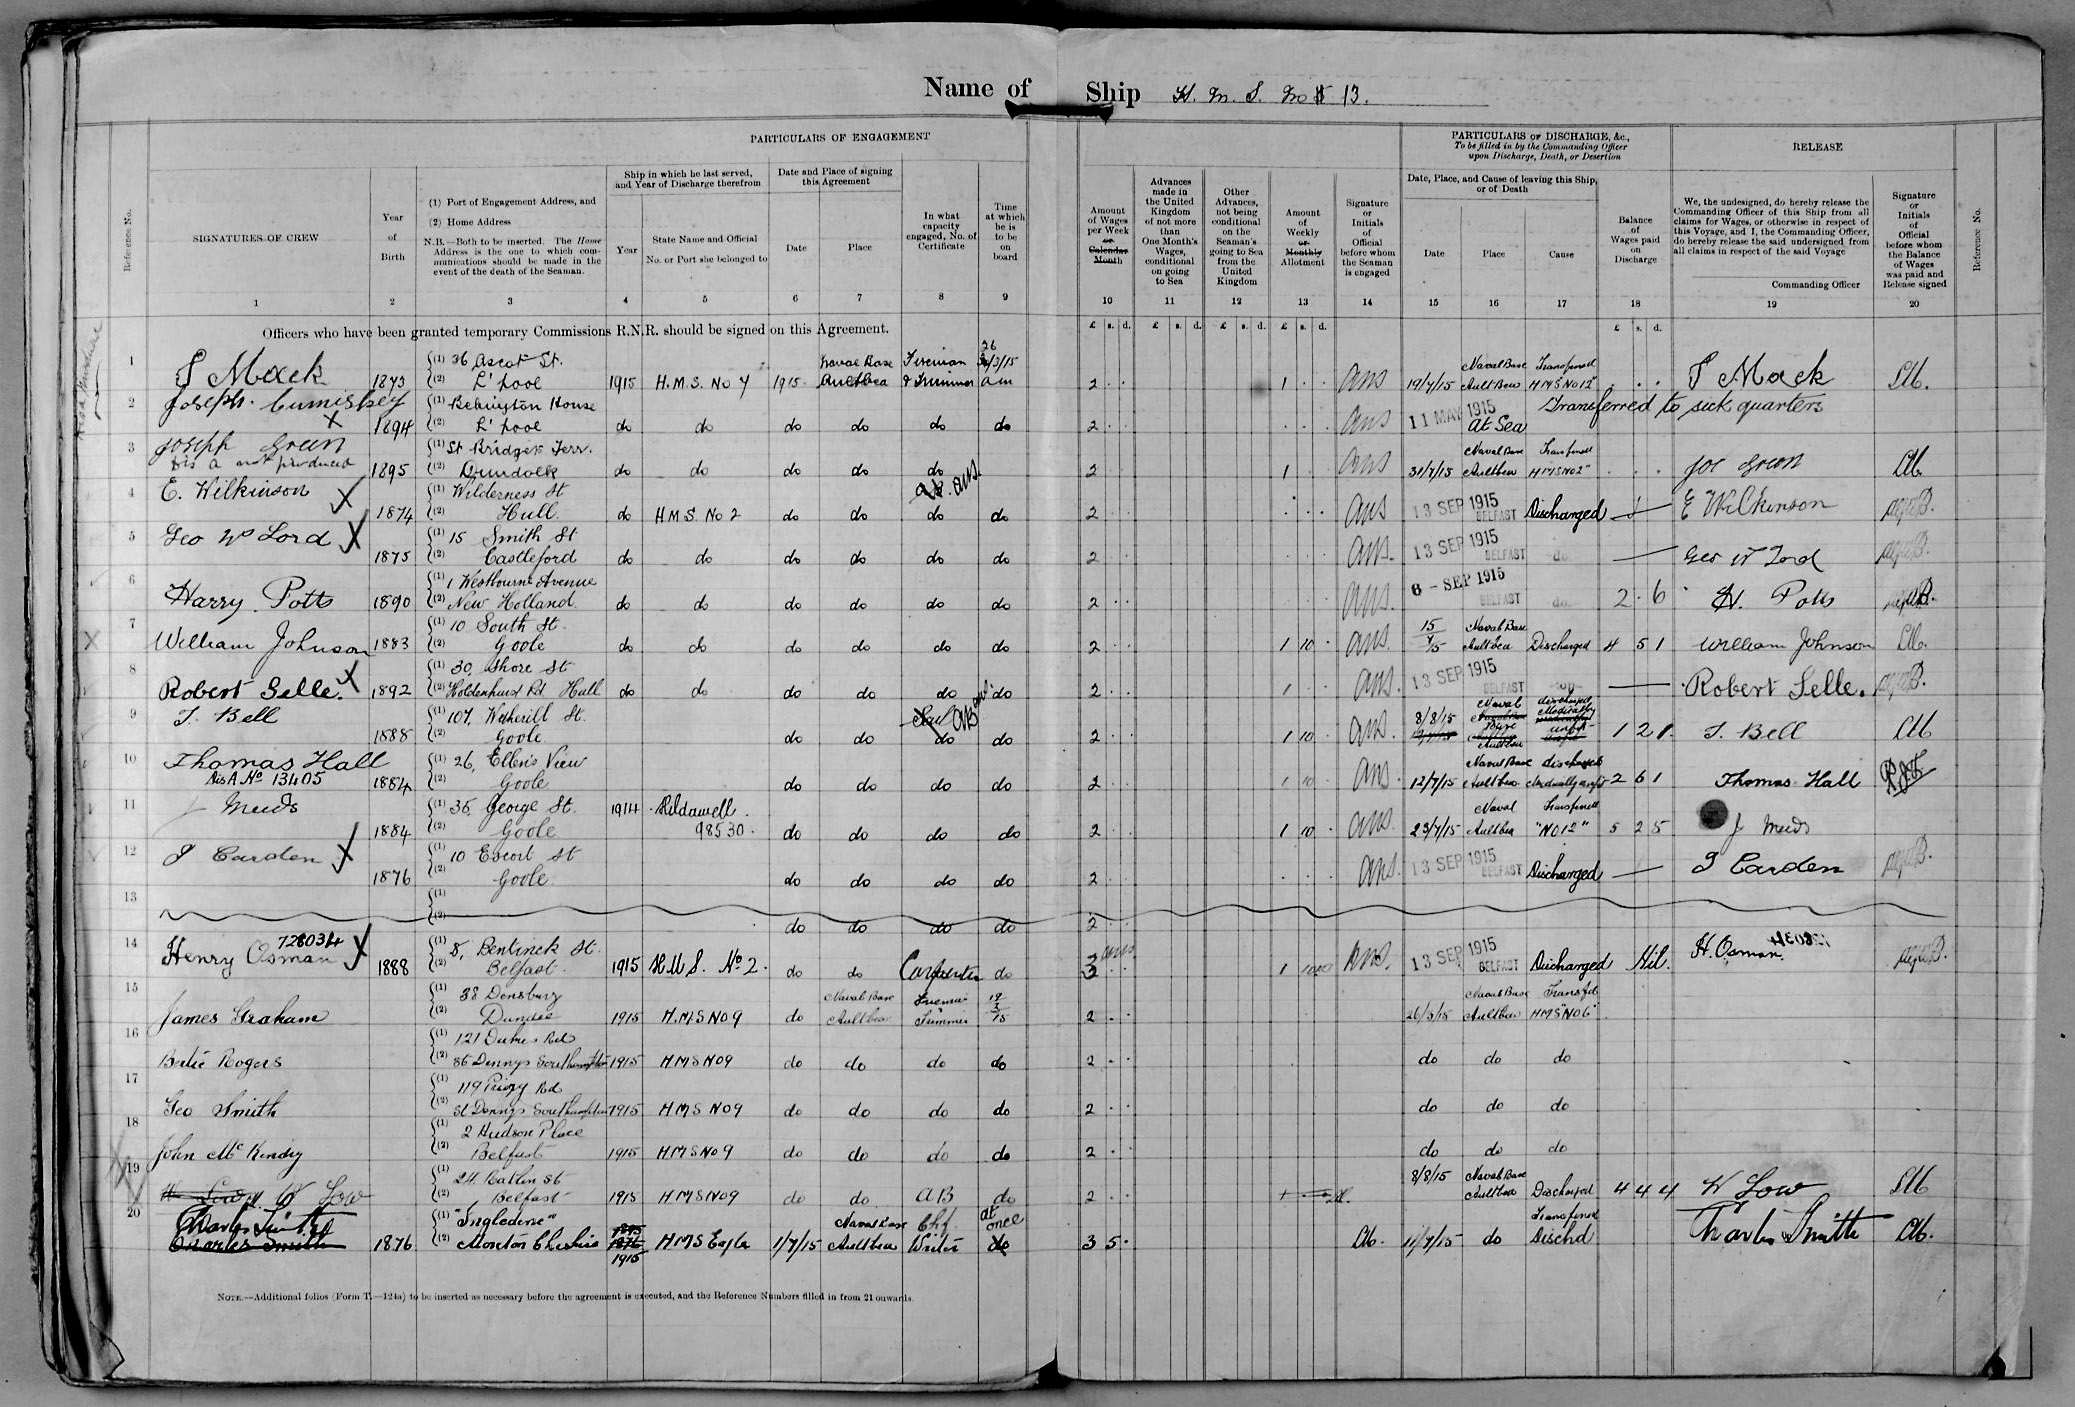 Name of Ship H. M. S. No 13.
PARTICULARS OF ENGAGEMENT
PARTICULARS OF DISCHARGE, &c.,
To be filled in by the Commanding Officer
upon Discharge, Death, or Desertion
RELEASE
Reference No.
SIGNATURES OF CREW
1
Year
of
Birth
2
(1) Port of Engagement Address, and
(2) Home Address
N.B.—Both to be inserted. The Home
Address is the one to which com-
munications should be made in the
event of the death of the Seaman.
3
Ship in which he last served,
and Year of Discharge therefrom
Year
4
State Name and Official
No. or Port she belonged to
5
Date and Place of signing
this Agreement
Date
6
Place
7
In what
capacity
engaged, No. of
Certificate
8
Time
at which
he is
to be
on
board
9
Amount
of Wages
per Week
or
Calendar
Month
10
Advances
made in
the United
Kingdom
of not more
than
One Month's
Wages,
conditional
on going
to Sea
11
Other
Advances,
not being
conditional
on the
Seaman's
going to Sea
from the
United
Kingdom
12
Amount
of
Weekly
or
Monthly
Allotment
13
Signature
or
Initials
of
Official
before whom
the Seaman
is engaged
14
Date, Place, and Cause of leaving this Ship,
or of Death
Date
15
Place
16
Cause
17
Balance
of
Wages paid
on
Discharge
18
We, the undersigned, do hereby release the
Commanding Officer of this Ship from all
claims for Wages, or otherwise in respect of
this Voyage, and I, the Commanding Officer,
do hereby release the said undersigned from
all claims in respect of the said Voyage
Commanding Officer
19
Signature
or
Initials
of
Official
before whom
the Balance
of Wages
was paid and
Release signed
20
Reference No.
Officers who have been granted temporary Commissions R.N.R. should be signed on this Agreement.
£ s. d. £ s. d. £ s. d. £ s. d. £ s. d.
1 (1) 36 Ascot St. Naval Base Fireman 26/3/15 Naval Base Transferred
S Mack 1873 (2) L'pool 1915 H.M.S. No 4 1915 Aultbea & Trimmer am 2 1 ans 19/7/15 Aultbea H M S "No 12" S Mack
2 Joseph Cumiskey (1) Bebington House 11 MAY 1915 Transferred to sick quarters
X 1894 (2) L'pool do do do do do do 2 ans At Sea
3 Joseph Green (1) St Bridget Terr. Naval Base Transferred
Dis A not produced 1895 (2) Dundalk do do do do do 2 1 ans 31/7/15 Aultbea H M S No 2" Joe Green
4 E. Wilkinson X (1) Wilderness St ans.
1874 (2) Hull. do H.M.S. No 2 do do do do 2 ans 13 SEP 1915 BELFAST Discharged E Wilkinson
5 Geo W Lord X (1) 15 Smith St
1875 (2) Castleford do do do do do do 2 ans. 13 SEP 1915 BELFAST do Geo W Lord
6 (1) 1 Westbourne Avenue
Harry Potts 1890 (2) New Holland. do do do do do do 2 ans. 6 - SEP 1915 BELFAST do. 2 . 6 H. Potts
7 (1) 10 South St. Naval Base
X William Johnson 1883 (2) Goole do do do do do do 2 1 10 ans. 15/7/15 Aultbea Discharged 4 5 1 William Johnson
8 (1) 30, Shore St
Robert Selle. X 1892 (2) Holdenhurst Rd Hull do do do do do do 2 1 ans. 13 SEP 1915 BELFAST Robert Selle.
9 T. Bell (1) 107, Wetherill St. AB Naval discharged
1888 (2) Goole do do do do 2 1 10 ans. 8/8/15 Base Aultbea Medically unfit 1 2 1. T. Bell
10 Thomas Hall (1) 26, Ellens View Naval Base discharged
Dis A No 13405 1884 (2) Goole do do do do 2 1 10 ans 12/7/15 Aultbea Medically unfit 2 6 1 Thomas Hall
11 J Meids (1) 36, George St. 1914 Naval Transferred
1884 (2) Goole 98530. do do do do 2 1 10 ans. 23/7/15 Aultbea "No 12" 5 2 5 J Meids
12 J Carden X (1) 10 Escort St
1876 (2) Goole. do do do do 2 ans. 13 SEP 1915 BELFAST Discharged J Carden
13 (1)
(2) do do do do 2
14 728034 (1) 8, Bentinck St.
Henry Osman X 1888 (2) Belfast. 1915 H.M.S. No 2. do do Carpenter do 3 1 ans. 13 SEP 1915 BELFAST Discharged Nil. H. Osman.
15 (1) 38 Densburg Naval Base Fireman 19/3/15 Naval Base Transfd
James Graham (2) Dundee 1915 H.M.S No 9 do Aultbea Trimmer 2 26/5/15 Aultbea H M S "No 6"
16 (1) 121 Dukes Rd
Bertie Rogers (2) 86 Dennys Southampton 1915 H M S No 9 do do do do 2 do do do
17 (1) 119 Priory Rd
Geo Smith (2) St Dennys Southampton 1915 H M S No 9 do do do do 2 do do do
18 (1) 2 Hudson Place
John McKendry (2) Belfast 1915 H M S No 9 do do do do 2 do do do
19 (1) 24 Catlin St 8/8/15 Naval Base
W Low (2) Belfast 1915 H M S No 9 do do AB do 2 Aultbea Discharged 4 4 4 W Low
20 Charles Smith (1) "Ingledene" Naval Base Chf. at once Transferred
Charles Smith 1876 (2) Moreton Cheshire 1915 H M S Eagle 1/7/15 Aultbea Writer do 3 5 11/7/15 do Dischd Charles Smith
NOTE.—Additional folios (Form T.—124a) to be inserted as necessary before the agreement is executed, and the Reference Numbers filled in from 21 onwards.